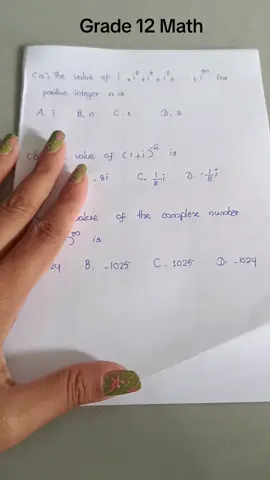 Grade 12 Math
(a) The value of i + i² + i³ + i⁴ + ... + i⁴ⁿ for
positive integer n is
A. i B. 0 C. 1 D. 2
value of (1+i)⁻⁶ is
- 8i C. 1/8 i D. -1/8 i
value of the complex number
)²⁰ is
024 B. -1025 C. 1025 D. -1024